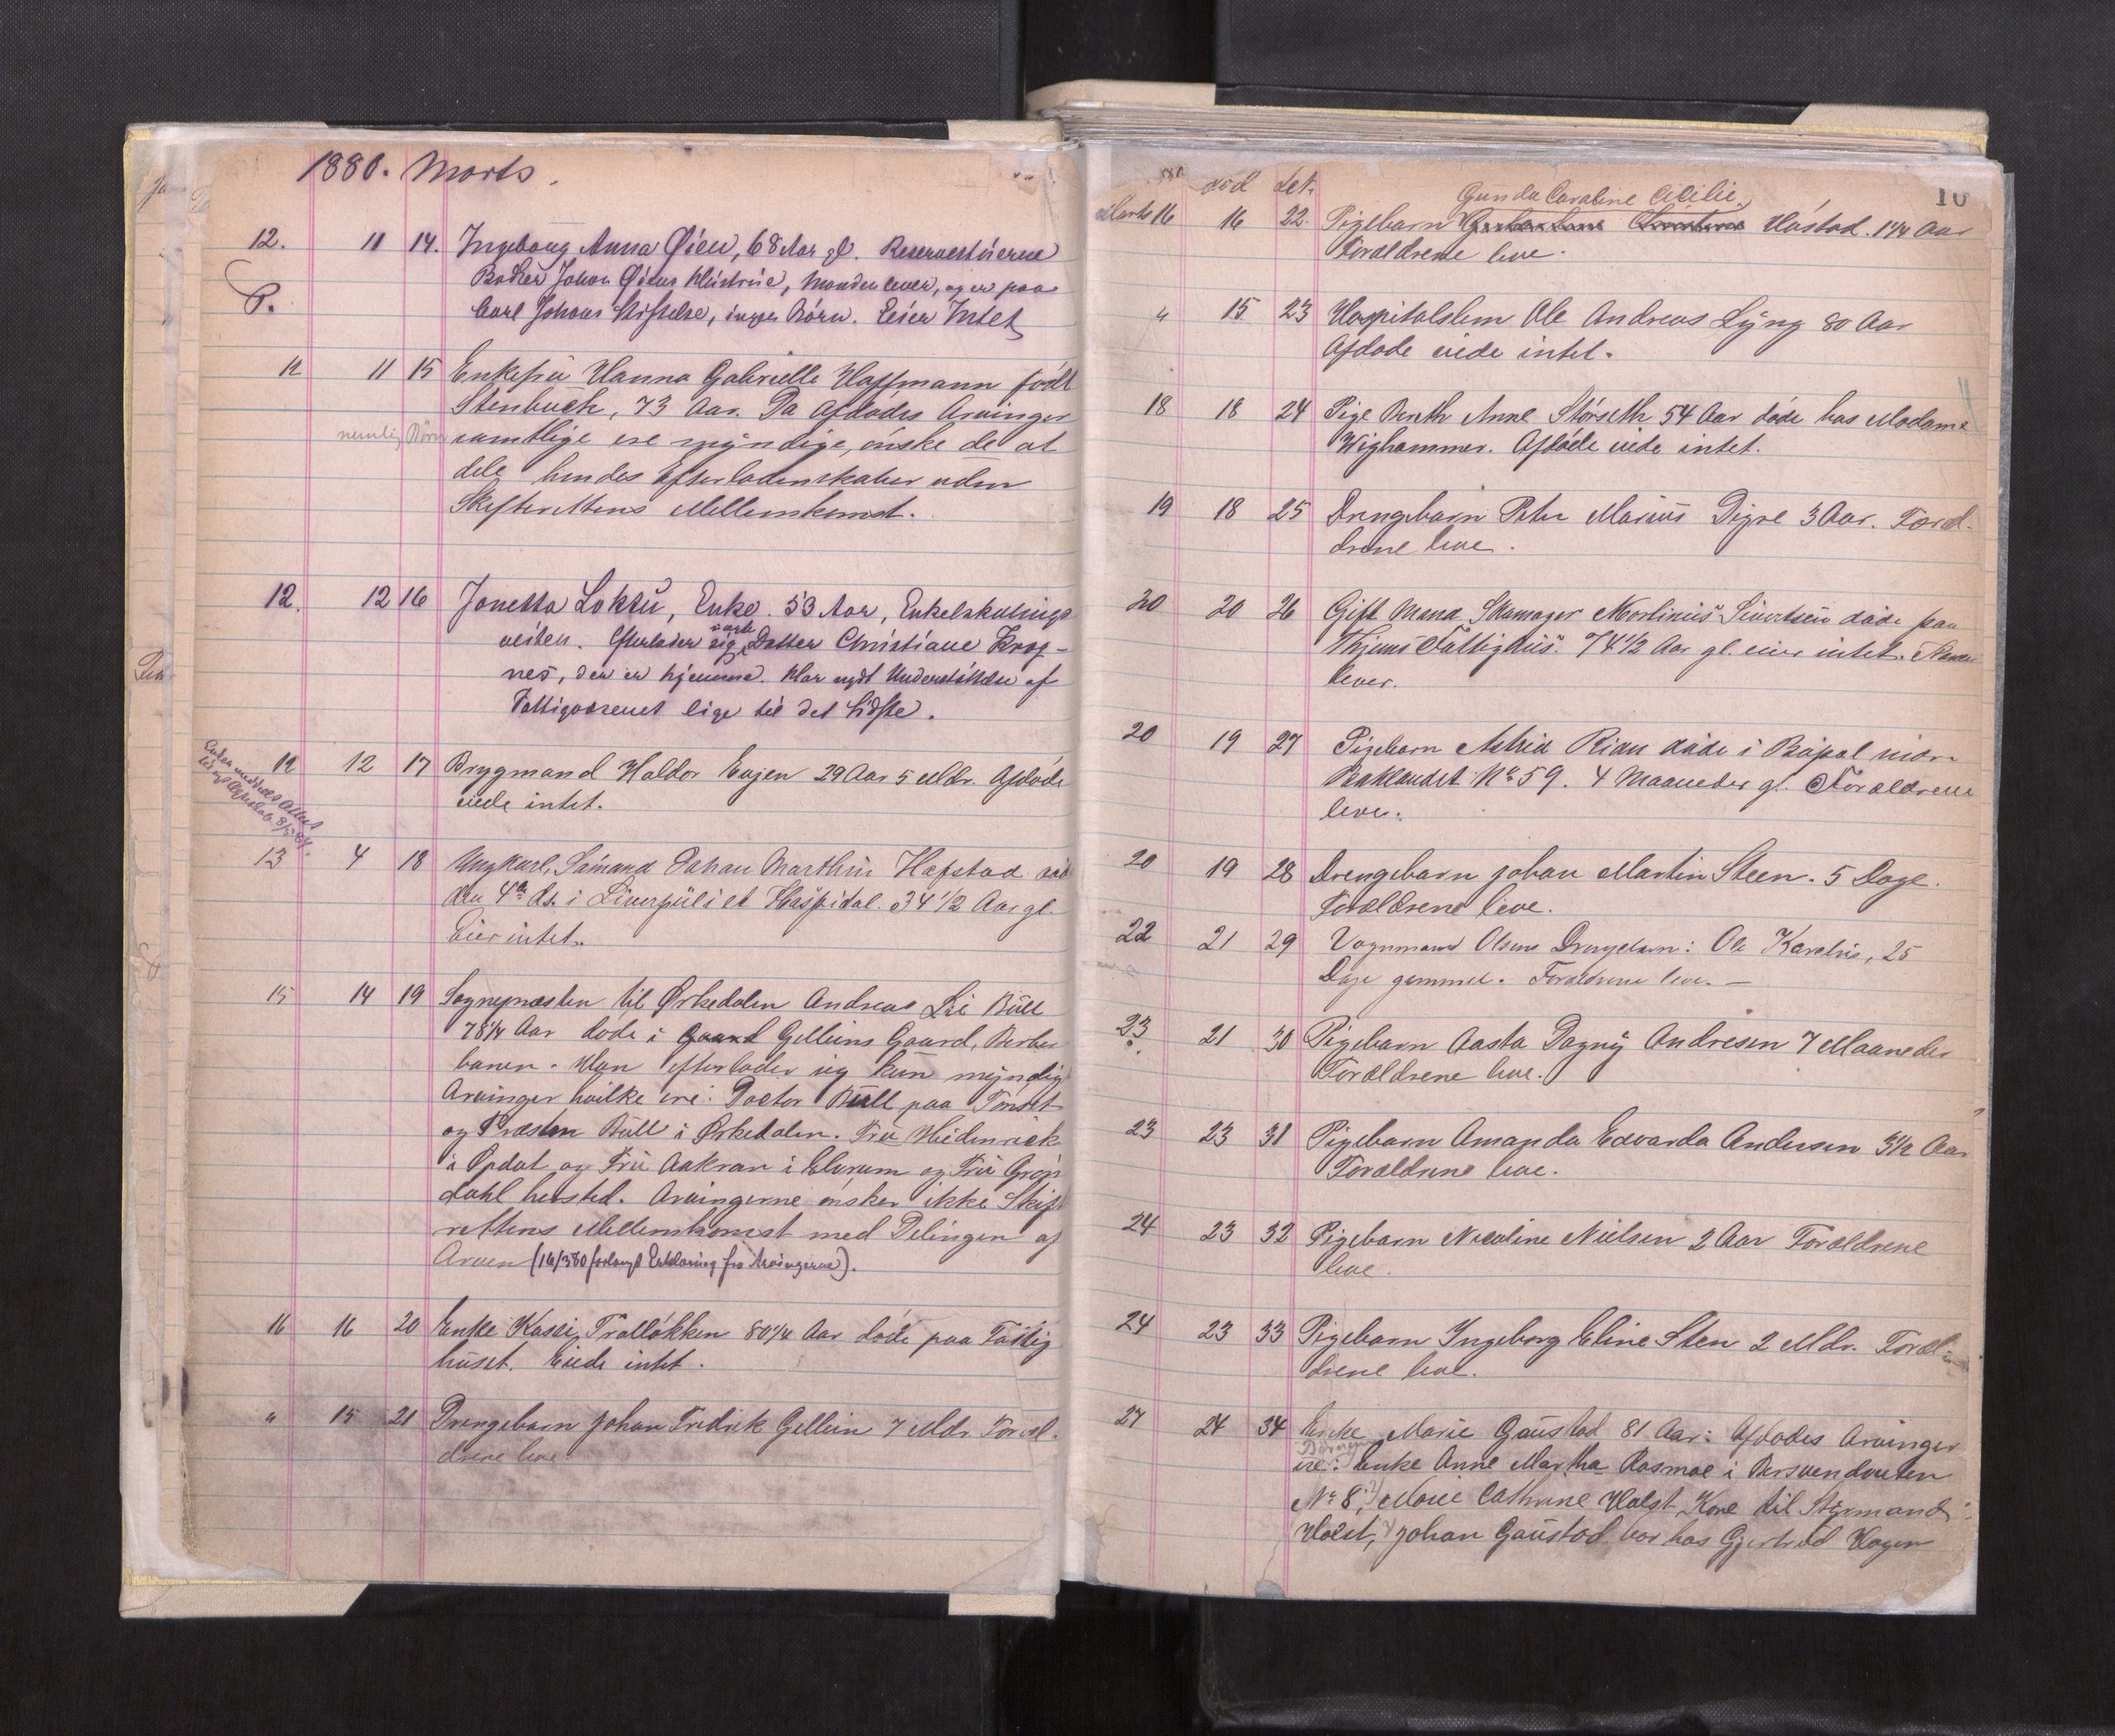 1880. Marts.
12. 11 14. Ingeborg Anna Øien, 68 Aar gl. Reservestuerne
P. Johan Øiens Hustrue, Manden lever, og er paa
Carl Johans Stiftelse, ingen Børn. Eier Intet
12 11 15 Enkefru Hanna Gabrielle Hoffmann født
Stenbuch, 73 Aar. Da Afdødes Arvinger
nemlig Børn samtlige ere myndige, ønske de at
dele hendes Efterladenskaber uden
Skifterettens Mellemkomst.
12. 12 16 Jonetta Loktu, Enke. 53 Aar, Enkelskillings
veiten. Efterlader sig Datter Christiane Krog-
nes, der er hjemme. Har nydt Understøttelse af
Fattigvæsenet lige til det Sidste.
12 12 17 Brygmand Haldor Engen 29 Aar 5 Mdr. Afdøde
eiede intet.
13 4 18 Ungkarl, Sømand Johan Marthin Hafstad død
den 4de ds. i Liverpül i et Hospidal. 34 1/2 Aar gl.
Eier intet.
15 14 19 Sognepræsten til Ørkedalen Andreas Lie Büll
78 1/4 Aar døde i Gaard Gelleins Gaard,
banen. Han efterlader sig kun myndig
Arvinger hvilke ere: Doctor Büll paa Tönset
og Præsten Büll i Ørkedalen. Frü
i Opdal og Frü Aakran i Elverum og Frü Grøn
dahl hersted. Arvingerne ønsker ikke Skif
rettens Mellemkomst med Delingen af
Arven (16/3 80 forlangt Erklæring fra Arvingerne).
16 16 20 Enke Trolløkken 80 1/4 Aar døde paa Fattig
hüset. Eiede intet.
" 15 21 Drengebarn Johan Fredrik Gellein 7 Mdr. Foræl-
drene leve
død Let. 10
Gunda Caroline Cicilie.
Marts 16 16 22. Pigebarn Hüstad. 1 1/4 Aar
Forældrene leve.
" 15 23 Hospitalslem Ole Andreas Lÿng 80 Aar
Afdøde eiede intet.
18 18 24 Pige Berith Anne Störseth 54 Aar døde hos Madame
Wighammer. Afdøde eiede intet.
19 18 25 Drengebarn Peter Mariüs Digre 3 Aar. Foræl-
drene leve.
20 20 26 Gift Mand, Skomager Mortinius Sivertsen døde paa
Fattighüs. 74 1/2 Aar gl. eier intet. Konen
lever.
20 19 27 Pigebarn Astrid Rian døde i nedre
Baklandet No 59. 4 Maaneder gl. Forældrene
leve.
20 19 28 Drengebarn Johan Martin Steen. 5 Dage.
Forældrene leve.
22 21 29 Vognmand Olsens Drengebarn: Ole Karelius, 25
Dage gammel. Forældrene leve. —
23 21 30 Pigebarn Aasta Dagnÿ Andresen 7 Maaneder
Forældrene leve.
23 23 31 Pigebarn Amanda Edvarda Andersen 3 1/2 Aar
Forældrene leve.
24 23 32 Pigebarn Nicoline Nielsen 2 Aar Forældrene
leve.
24 23 33 Pigebarn Ingeborg Eline Sten 2 Mdr. Foræl-
drene leve.
27 24 34 Enke Marie Gaüstad 81 Aar: Afdødes Arvinger
ere: Børnene Enke Anne Martha Rosmoe i Bersvendveiten
No 8, Marie Cathrine Holst Kone til Stÿrmand
Holst, Johan Gaüstad bor hos Gjertrud Hagen